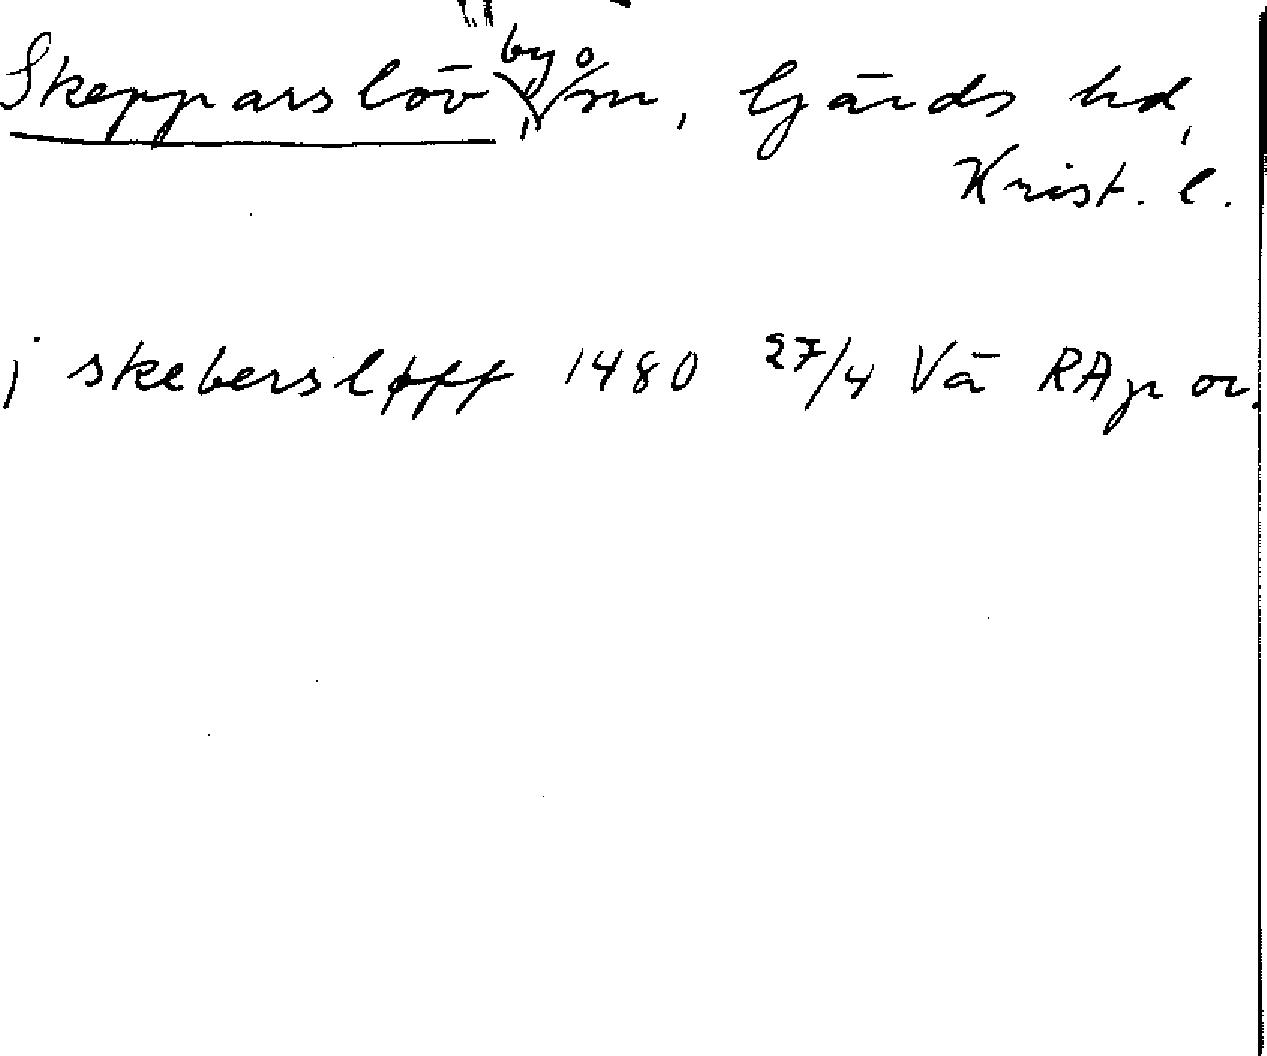 Skepparslöv, by o/m, Gärds hd,
Krist. l.
j skebersløff 1480 27/4 Vä RAp or.